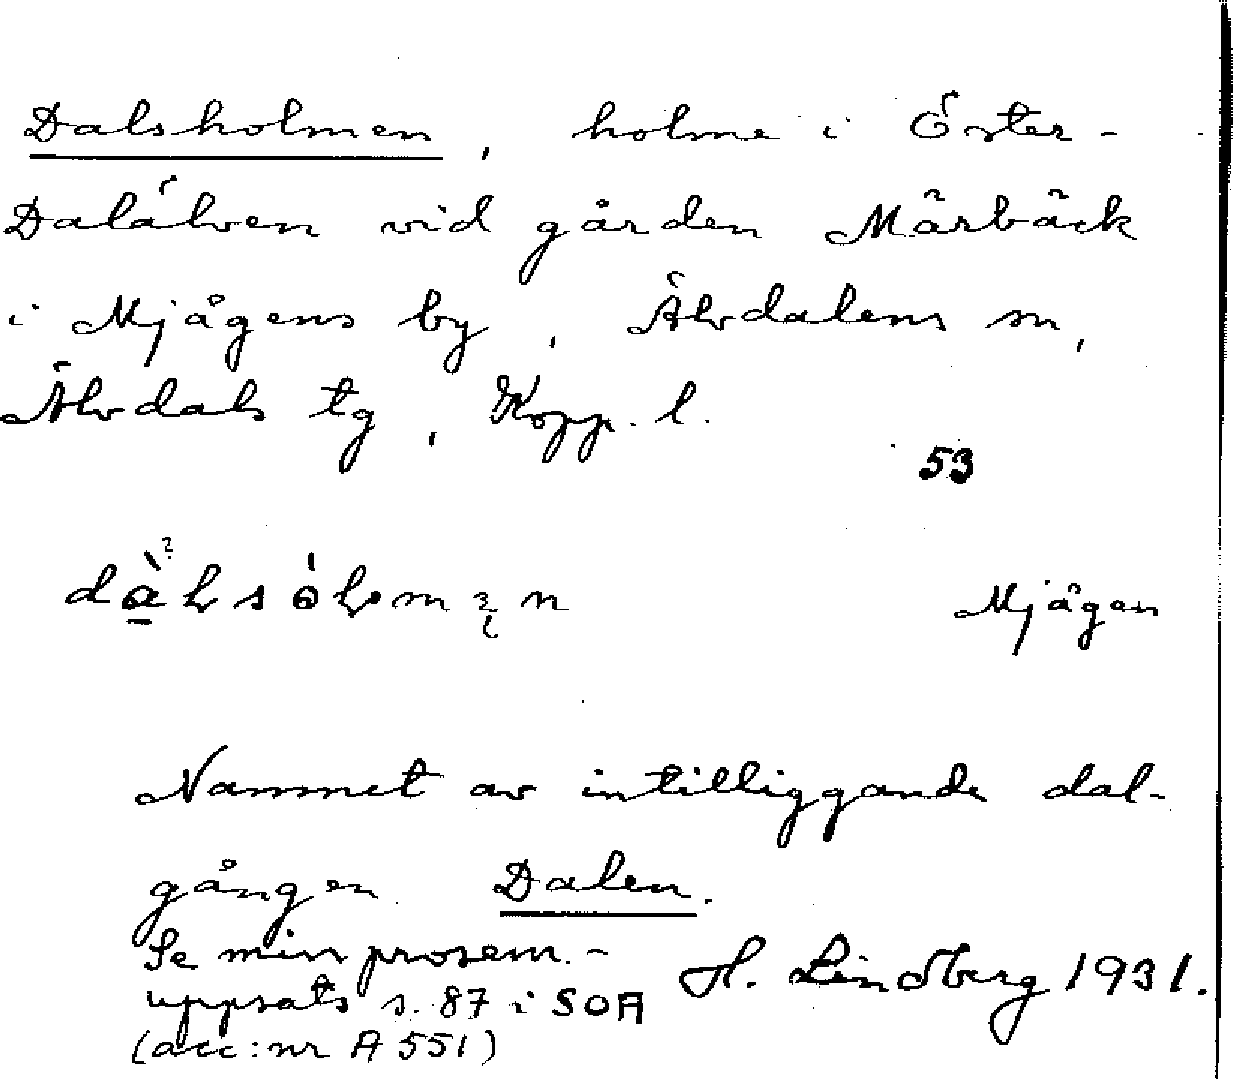 Dalsholmen, holme i Öster-
Dalälven vid gården Märbäck
i Mjågens by, Älvdalens sn,
Älvdals tg, Kopp. l.
53
Mjågen
Namnet av intilliggande dal-
gången Dalen.
Se min prosem.-
uppsats s. 87 i SOA
(acc:nr A 551)
H. Lindberg 1931.